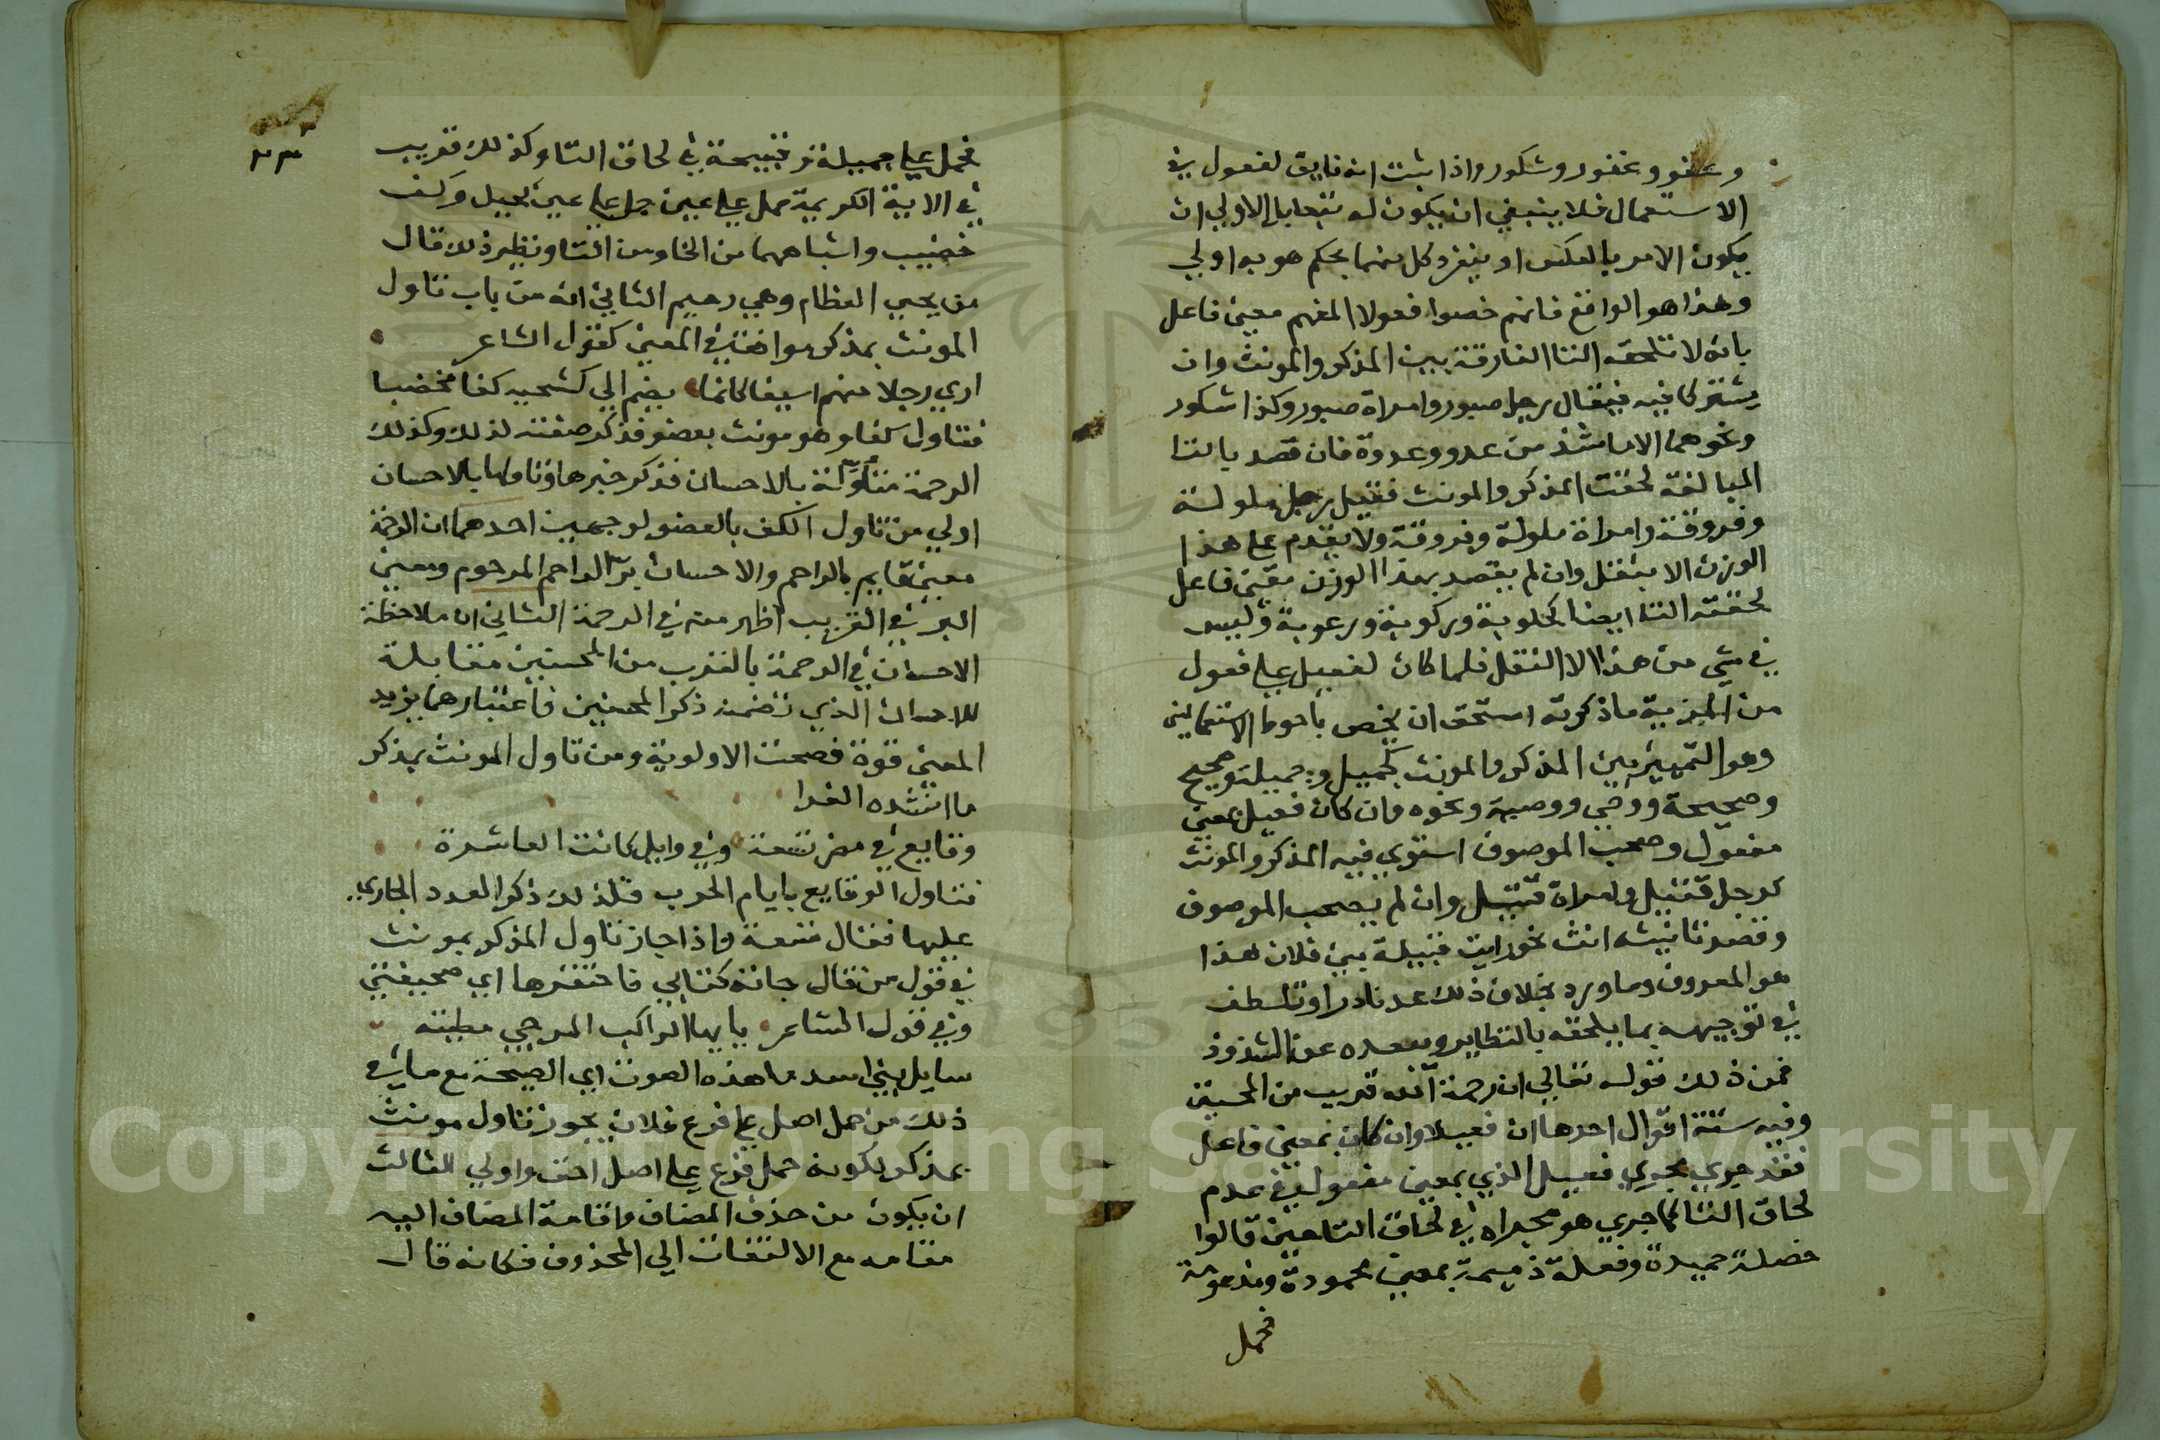 وعفو وغفور وشكور واذا ثبت انه فايق لفعول في
الاستعمال فلا ينبغي ان يكون له تبعا بل الاولي ان
يكون الامر بالعكس او ينفرد كل منهما بحكم هو به اولي
وهذا هو الواقع فانهم خصوا فعولا المفهم معني فاعل
بانه لا تلحقه التا الفارقة بين المذكر والمونث وان
يشتركا فيه فيقال رجل صبور وامراة صبور وكذا شكور
ونحوهما الا ما شذ من عدو وعدوة فان قصد بالتا
المبالغة لحقت المذكر والمونث فقيل رجل ملولة
وفروقة وامراة ملولة وفروقة ولا يقدم علي هذا
الوزن الا بنقل وان لم يقصد بهذا الوزن معني فاعل
لحقته التا ايضا كحلوبة وركوبة ورعوبة وليس
في شي من هذا الا النقل فلما كان لفعيل علي فعول
من المزية ما ذكرته استحق ان يخص باحوط الاستعمالين
وهو التمييز بين المذكر والمونث كجميل وجميلة وصحيح
وصحيحة ووضي ووضية ونحوه وان كان فعيل بمعني
مفعول وصحب الموصوف استوي فيه المذكر والمونث
كرجل قتيل وامراة قتيل وان لم يصحب الموصوف
وقصد تانيثه انث نحو رايت قتيلة بني فلان هذا
هو المعروف وما ورد بخلاف ذلك عد نادرا وتلطف
في توجيهه بما يلحقه بالنظاير ويبعده عن الشذوذ
فمن ذلك قوله تعالي ان رحمة الله قريب من المحسنين
وفيه ستة اقوال احدها ان فعيلا وان كان بمعني فاعل
فقد جري مجري فعيل الذي بمعني مفعول في عدم
لحاق التا كما جري هو مجراه في لحاق التا حين قالوا
خصلة حميدة وفعلة ذميمة بمعني محمودة ومذمومة
فحمل
٢٣
فحمل علي جميلة وقبيحة في لحاق التا وكذلك قريب
في الاية الكريمة حمل علي عين حمل علي عين كحيل وكف
خضيب واشباههما من الخلو من التا ونظيره ذلك قال
من يحيي العظام وهي رميم الثاني انه من باب تاول
المونث بمذكر موافقة في المعني كقول الشاعر
اري رجلا منهم اسيفا كانما يضم الي كشحيه كفا مخضبا
فتاول كفا وهو مونث بعضو فذكر صفته لذلك وكذلك
الرحمة متاولة بالاحسان فذكر خبرها وتاولها بالاحسان
اولي من تاول الكف بالعضو لوجهين احدهما ان الرحمة
معني قايم بالراحم والاحسان بر الراحم المرحوم ومعني
البر في القريب اظهر منه في الرحمة الثاني ان ملاحظة
الاحسان في الرحمة بالقرب من المحسنين مقابلة
للاحسان الذي تضمنه ذكر المحسنين فاعتبارهما يزيد
المعني قوة فصحت الاولوية ومن تاول المونث بمذكر
ما انشده الفرا
وقايع في مضر تسعة وفي وايل كانت العاشرة
فتاول الوقايع بايام الحرب فلذلك ذكر العدد الجاري
عليها فقال تسعة واذا جاز تاول المذكر بمونث
في قول من قال جاته كتابي فاحتقرها اي صحيفتي
وفي قول الشاعر يا ايها الراكب المزجي مطيته
سايل بني اسد ما هذه الصوت اي الصيحة مع ما في
ذلك من حمل اصل علي فرع فلان يجوز تاول مونث
بمذكر لكونه حمل فرع علي اصل احق واولي الثالث
ان يكون من حذف المضاف واقامة المضاف اليه
مقامه مع الالتفات الي المحذوف فكانه قال
Copyright © King Saud University
1957